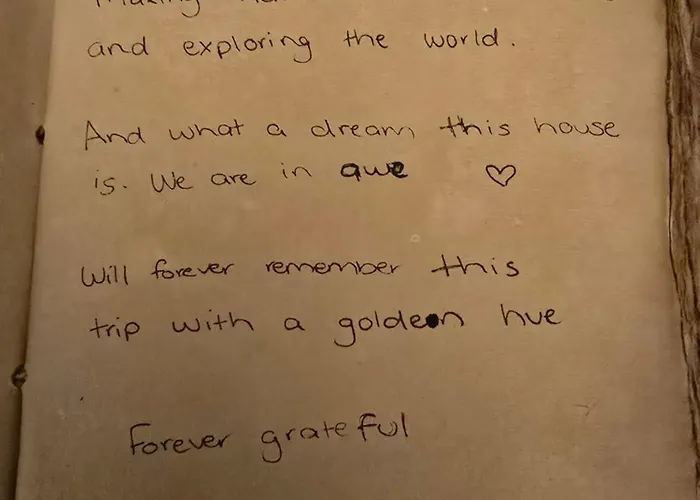 and exploring the world.
And what a dream this house
is. We are in awe ♡
Will forever remember this
trip with a golden hue
Forever grateful